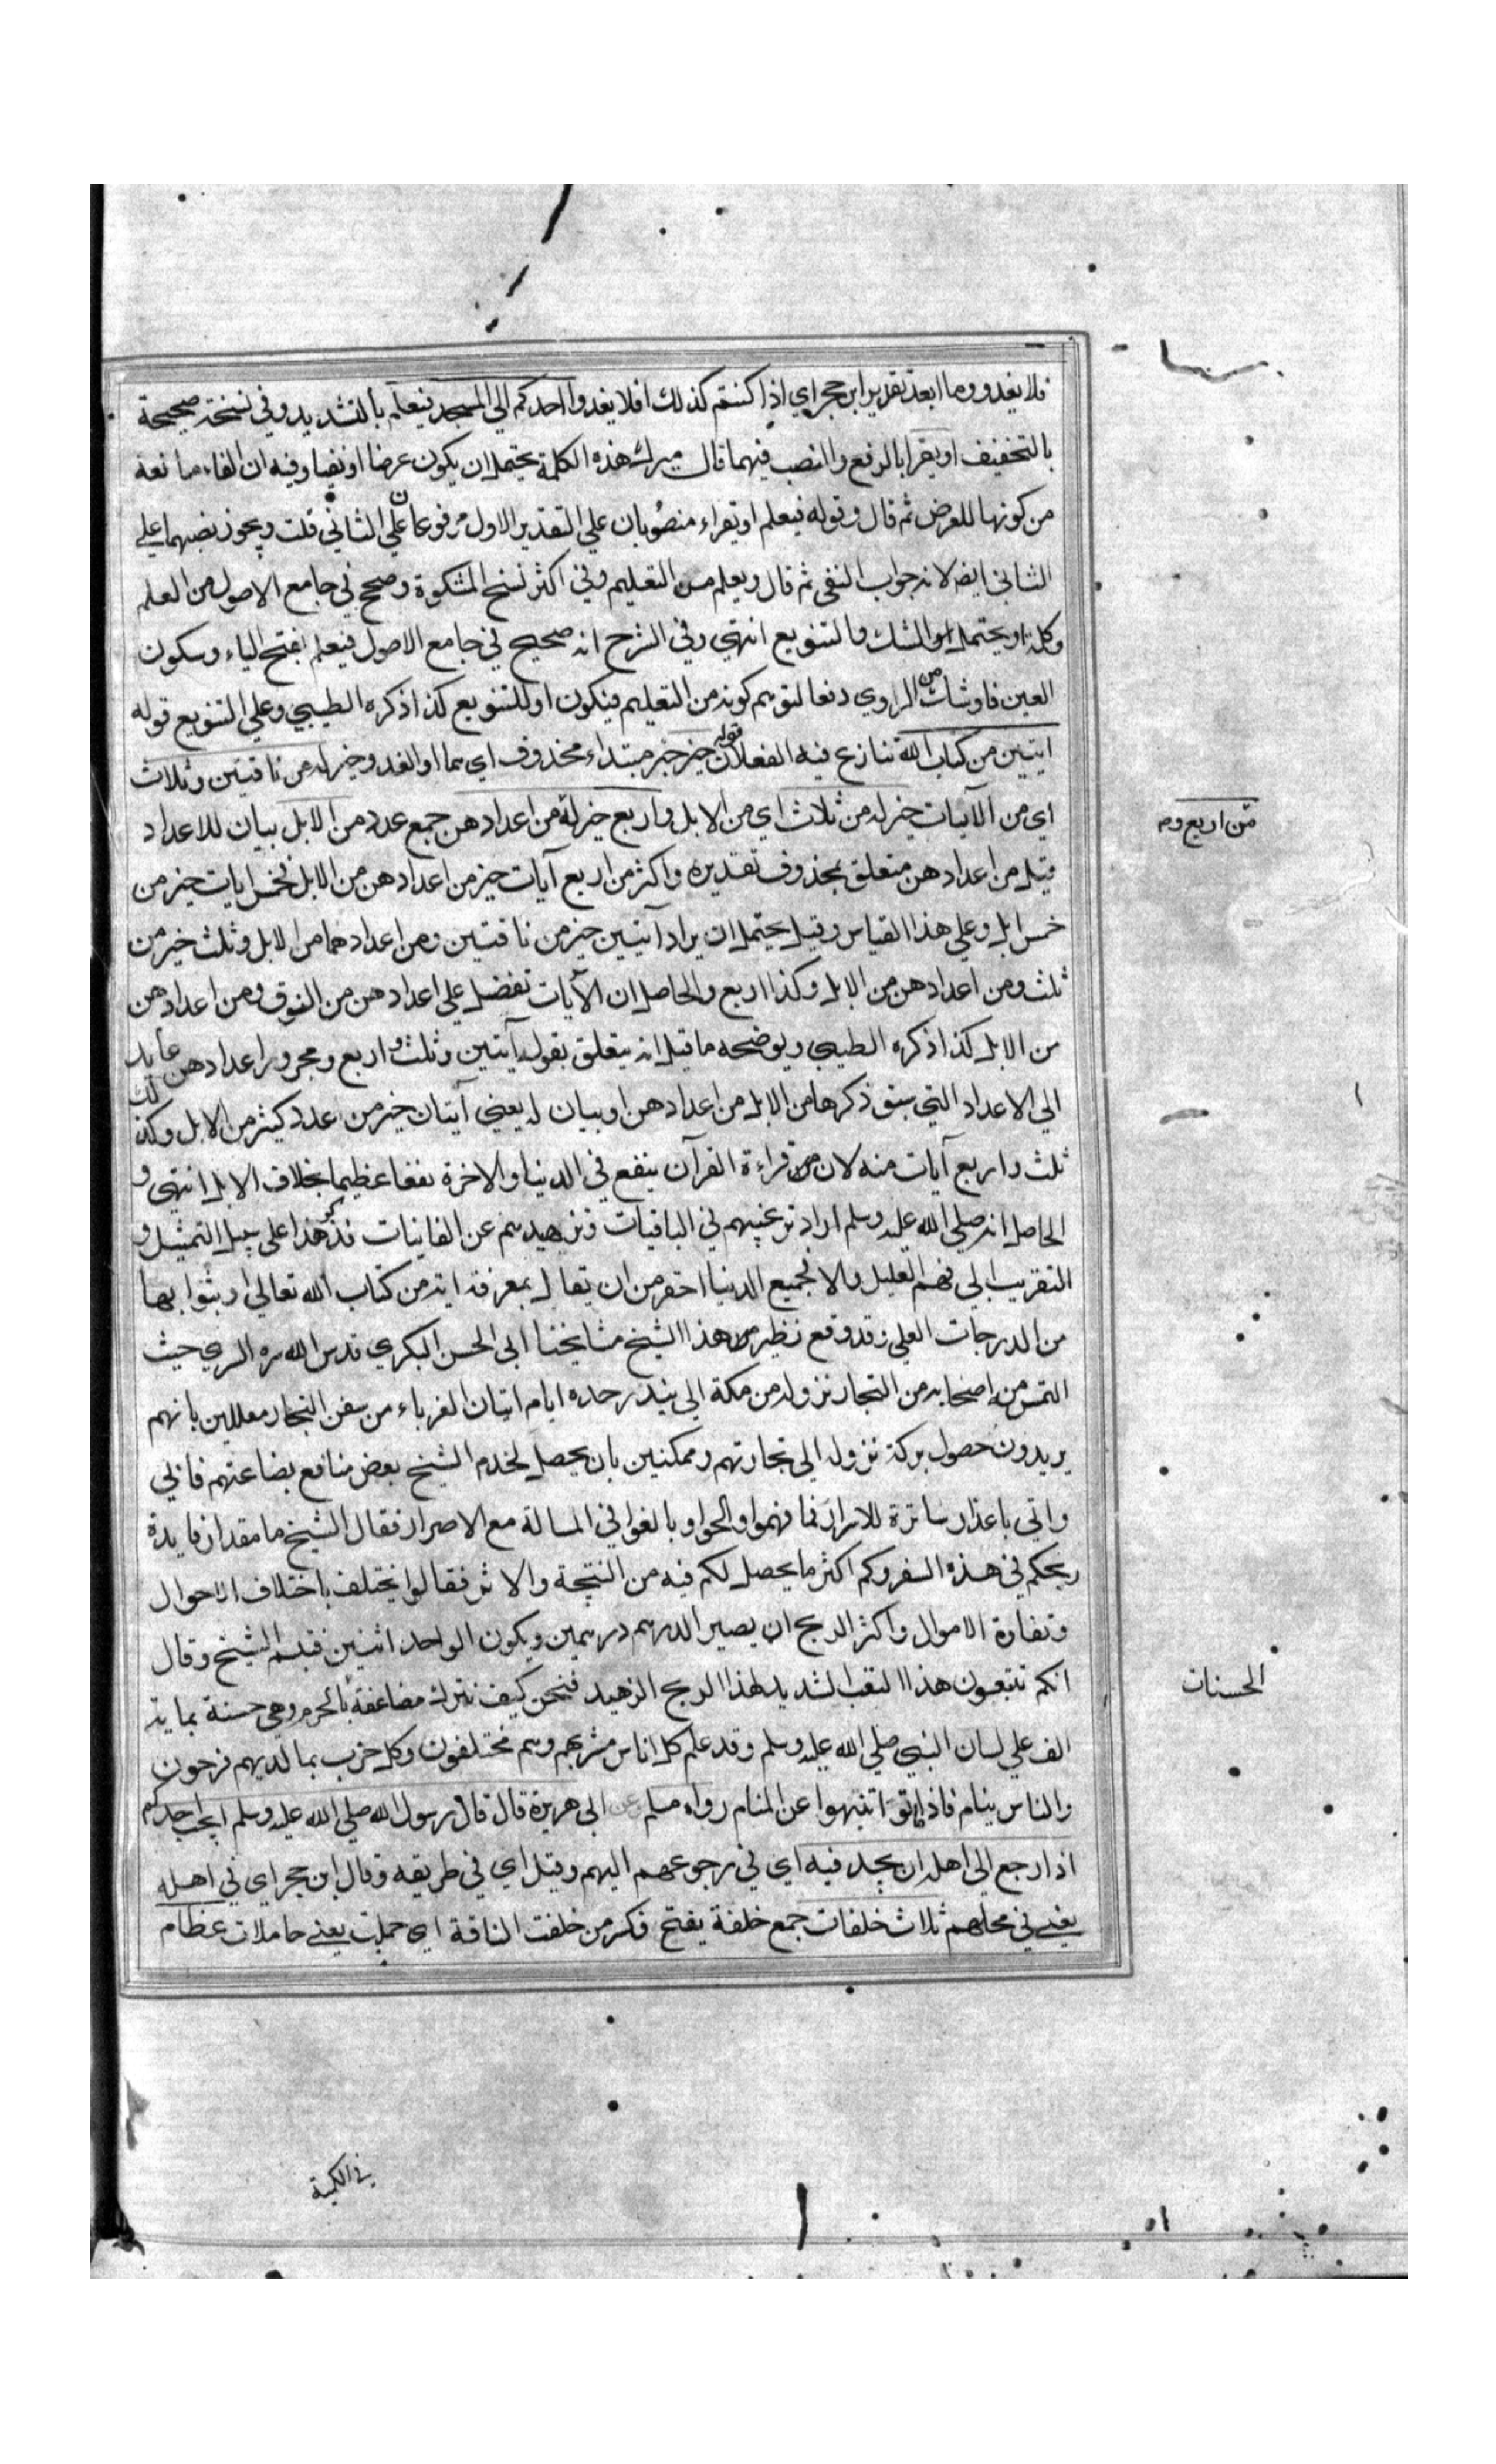 فلا يغدو وما ابعد تقدير ابن حجر اي اذا كنتم كذلك افلا يغدوا احدكم الي المسجد فيعلم بالتشديد وفي نسخة صحيحة
بالتخفيف او يقرا بالرفع والنصب فيهما قال ميرك هذه الكلمة يحتمل ان يكون عرضا او نفيا وفيه ان الفاء مانعة
من كونها للعرض ثم قال وقوله فيعلم او يقراء منصوبان علي التقدير الاول مرفوعان علي الثاني قلت ويجوز نصبهما علي
الثاني ايضا لانه جواب النفي ثم قال ويعلم من التعليم وفي اكثر نسخ المشكوة وصحح في جامع الاصول من العلم
وكلمة او يحتمل الشك والتنويع انتهي وفي الشرح انه صحيح في جامع الاصول فيعلم بفتح الياء وسكون
العين فاو شك من الراوي دفعا لتوهم كونه من التعليم فيكون او للتنويع كذا ذكره الطيبي وعلي التنويع قوله
ايتين من كتاب الله تنازع فيه الفعلان قوله خير خبر مبتداء محذوف اي هما او الغدو خير له من ناقتين وثلاث
اي من الآيات خير له من ثلاث اي من الابل واربع خير له من اعدادهن جمع عدد من الابل بيان للاعداد
قيل من اعدادهن متعلق بمحذوف تقديره واكثر من اربع آيات خير من اعدادهن من الابل فخمس ايات خير من
خمس ابل وعلي هذا القياس وقيل يحتمل ان يراد آيتين خير من ناقتين ومن اعدادهما من الابل وثلث خير من
ثلث ومن اعدادهن من الابل وكذا اربع والحاصل ان الآيات تفضل علي اعدادهن من النوق ومن اعدادهن
من الابل كذا ذكره الطيبي ويوضحه ما قيل انه يتعلق بقوله آيتين وثلث واربع ومجرور اعدادهن عايد
الي الاعداد التي سبق ذكرها من الابل من اعدادهن او بيان له يعني آيتان خير من عدد كثير من الابل وكذلك
ثلث واربع آيات منه لان قراءة القرآن ينفع في الدنيا والاخرة نفعا عظيما بخلاف الابل انتهي و
الحاصل انه صلي الله عليه وسلم اراد ترغيبهم في الباقيات وتزهيدهم عن الفانيات فذكر هذا علي سبيل التمثيل و
التقريب الي فهم العليل والا فجميع الدنيا احقر من ان يقابل بمعرفة اية من كتاب الله تعالي او بثوابها
من الدرجات العلي وقد وقع نظير هذا الشيخ مشايخنا ابي الحسن البكري قدس الله سره السري حيث
التمس من اصحابه من التجار نزوله من مكة الي بندر جده ايام اتيان الغرباء من سفن التجار معللين بانهم
يريدون حصول بركة نزوله الي تجارتهم وممكنين بان يحصل لخدم الشيخ بعض منافع بضاعتهم فابي
واتي باعذار ساترة للاسرار فما فهموا والحوا وبالغوا في المسالة مع الاصرار فقال الشيخ ما مقدار فايدة
ربحكم في هذه السفر وكم اكثر ما يحصل لكم فيه من النتيجة والاثر فقالوا يختلف باختلاف الاحوال
وتفاوة الاموال واكثر الربح ان يصير الدرهم درهمين ويكون الواحد اثنين فتبسم الشيخ وقال
انكم تتبعون هذا التعب الشديد لهذا الربح الزهيد فنحن كيف نترك مضاعفة بالحرم وهي حسنة بماية
الف علي لسان النبي صلي الله عليه وسلم وقد علم كل اناس مشربهم وهم مختلفون وكل حزب بما لديهم فرحون
والناس ينام فاذا ماتوا انتبهوا عن المنام رواه مسلم وعن ابي هريرة قال قال رسول الله صلي الله عليه وسلم ايحب احدكم
اذا رجع الي اهله ان يجد فيه اي في رجوعهم اليهم وقيل اي في طريقه وقال ابن حجر اي في اهله
يعني في محلهم ثلاث خلفات جمع خلفة بفتح فكسر من خلفت الناقة اي حملت يعني حاملات عظام
من اربع وم
الحسنات
في الكمية